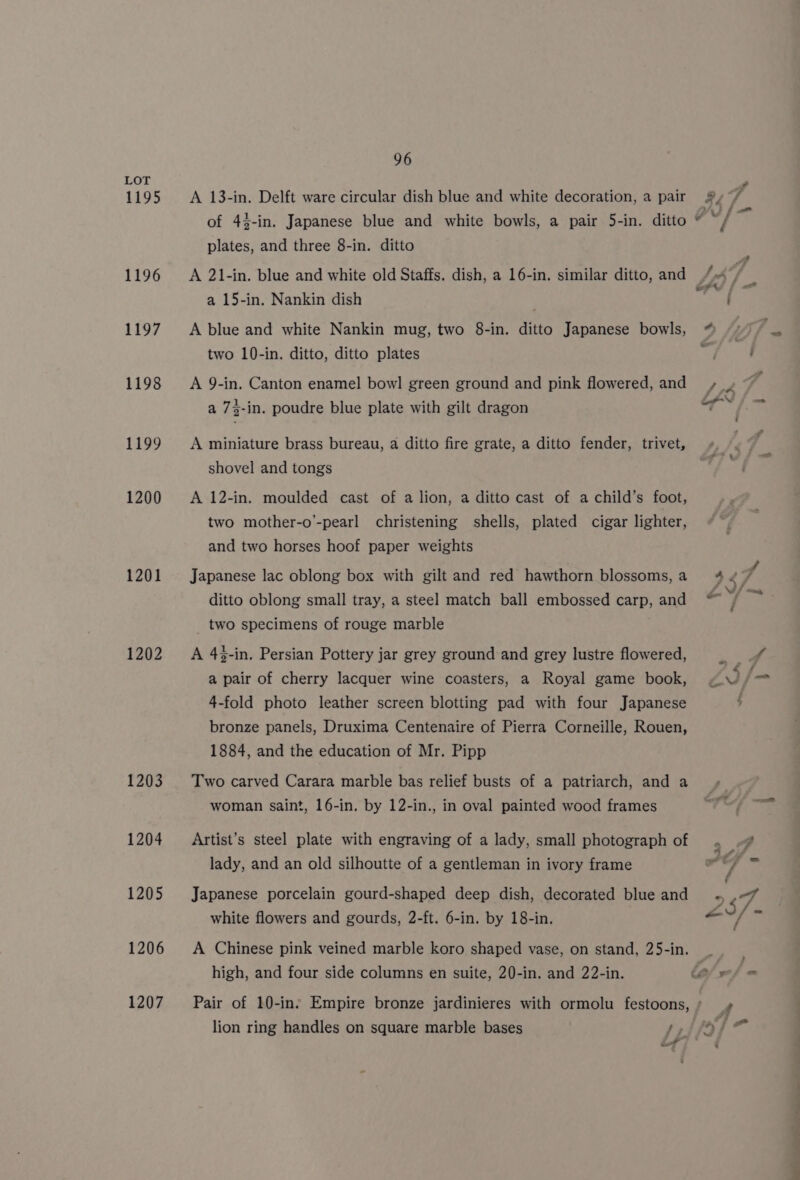 96
LOT
1195 A 13-in. Delft ware circular dish blue and white decoration, a pair
of 4½-in. Japanese blue and white bowls, a pair 5-in. ditto
plates, and three 8-in. ditto
1196 A 21-in. blue and white old Staffs. dish, a 16-in. similar ditto, and
a 15-in. Nankin dish
1197 A blue and white Nankin mug, two 8-in. ditto Japanese bowls,
two 10-in. ditto, ditto plates
1198 A 9-in. Canton enamel bowl green ground and pink flowered, and
a 7½-in. poudre blue plate with gilt dragon
1199 A miniature brass bureau, a ditto fire grate, a ditto fender, trivet,
shovel and tongs
1200 A 12-in. moulded cast of a lion, a ditto cast of a child's foot,
two mother-o'-pearl christening shells, plated cigar lighter,
and two horses hoof paper weights
1201 Japanese lac oblong box with gilt and red hawthorn blossoms, a
ditto oblong small tray, a steel match ball embossed carp, and
two specimens of rouge marble
1202 A 4½-in. Persian Pottery jar grey ground and grey lustre flowered,
a pair of cherry lacquer wine coasters, a Royal game book,
4-fold photo leather screen blotting pad with four Japanese
bronze panels, Druxima Centenaire of Pierra Corneille, Rouen,
1884, and the education of Mr. Pipp
1203 Two carved Carara marble bas relief busts of a patriarch, and a
woman saint, 16-in. by 12-in., in oval painted wood frames
1204 Artist's steel plate with engraving of a lady, small photograph of
lady, and an old silhoutte of a gentleman in ivory frame
1205 Japanese porcelain gourd-shaped deep dish, decorated blue and
white flowers and gourds, 2-ft. 6-in. by 18-in.
1206 A Chinese pink veined marble koro shaped vase, on stand, 25-in.
high, and four side columns en suite, 20-in. and 22-in.
1207 Pair of 10-in. Empire bronze jardinieres with ormolu festoons,
lion ring handles on square marble bases